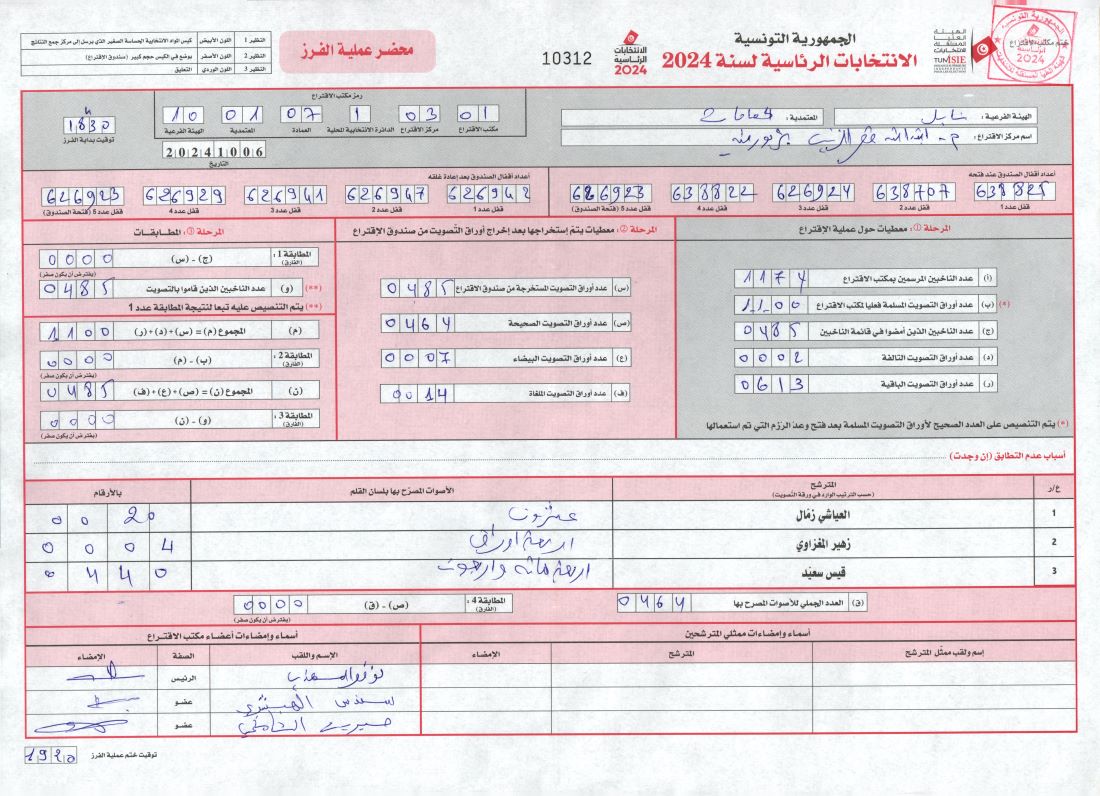 الجمهورية التونسية
الانتخابات الرئاسية لسنة 2024
الهيئة العليا المستقلة للانتخابات
TUNISIE
ختم مكتب الاقتراع
الانتخابات الرئاسية 2024
10312
محضر عملية الفرز
النظير 1 اللون الأبيض كيس المواد الانتخابية الحساسة الصغير الذي يرسل إلى مركز جمع النتائج
النظير 2 اللون الأصفر يوضع في الكيس حجم كبير (صندوق الاقتراع)
النظير 3 اللون الوردي التعليق
الهيئة الفرعية : نابل
المعتمدية : الحمامات 2
اسم مركز الاقتراع : م - ابتدائية
رمز مكتب الاقتراع
01 03 1 07 01 10
مكتب الاقتراع مركز الاقتراع الدائرة الانتخابية المحلية العمادة المعتمدية الهيئة الفرعية
20241006
التاريخ
1830
توقيت بداية الفرز
أعداد أقفال الصندوق عند فتحه
638825 638707 626924 638822 626923
قفل عدد 1 قفل عدد 2 قفل عدد 3 قفل عدد 4 قفل عدد 5 (فتحة الصندوق)
أعداد أقفال الصندوق بعد إعادة غلقه
626942 626947 626941 626929 626923
قفل عدد 1 قفل عدد 2 قفل عدد 3 قفل عدد 4 قفل عدد 5 (فتحة الصندوق)
المرحلة ①: معطيات حول عملية الإقتراع
(أ) عدد الناخبين المرسمين بمكتب الاقتراع 1174
(*) (ب) عدد أوراق التصويت المسلمة فعليا لمكتب الاقتراع 1100
(ج) عدد الناخبين الذين أمضوا في قائمة الناخبين 0485
(د) عدد أوراق التصويت التالفة 0002
(ر) عدد أوراق التصويت الباقية 0613
(*) يتم التنصيص على العدد الصحيح لأوراق التصويت المسلمة بعد فتح وعد الرزم التي تم استعمالها
المرحلة ②: معطيات يتم إستخراجها بعد إخراج أوراق التصويت من صندوق الإقتراع
(س) عدد أوراق التصويت المستخرجة من صندوق الاقتراع 0485
(ص) عدد أوراق التصويت الصحيحة 0464
(ع) عدد أوراق التصويت البيضاء 0007
(ف) عدد أوراق التصويت الملغاة 0014
المرحلة ③: المطابقات
المطابقة 1 : (الفارق) (ج) - (س) 0000
(يفترض أن يكون صفر)
(**) (و) عدد الناخبين الذين قاموا بالتصويت 0485
(**) يتم التنصيص عليه تبعا لنتيجة المطابقة عدد 1
(م) المجموع (م) = (س) + (د) + (ر) 1100
المطابقة 2 : (الفارق) (ب) - (م) 0000
(يفترض أن يكون صفر)
(ن) المجموع (ن) = (ص) + (ع) + (ف) 0485
المطابقة 3 : (الفارق) (و) - (ن) 0000
(يفترض أن يكون صفر)
أسباب عدم التطابق (إن وجدت)
ع/ر المترشح (حسب الترتيب الوارد في ورقة التصويت) الأصوات المصرّح بها بلسان القلم بالأرقام
1 العياشي زمّال عشرون 0020
2 زهير المغزاوي اربعة اوراق 0004
3 قيس سعيّد اربعة مائة واربعون 0440
(ق) العدد الجملي للأصوات المصرح بها 0464
المطابقة 4 : (الفارق) (ص) - (ق) 0000
(يفترض أن يكون صفر)
أسماء وإمضاءات ممثلي المترشحين
إسم ولقب ممثّل المترشح المترشح الإمضاء
أسماء وإمضاءات أعضاء مكتب الاقتراع
الإسم واللقب الصفة الإمضاء
الرئيس
سندس عضو
عضو
توقيت ختم عملية الفرز 1920